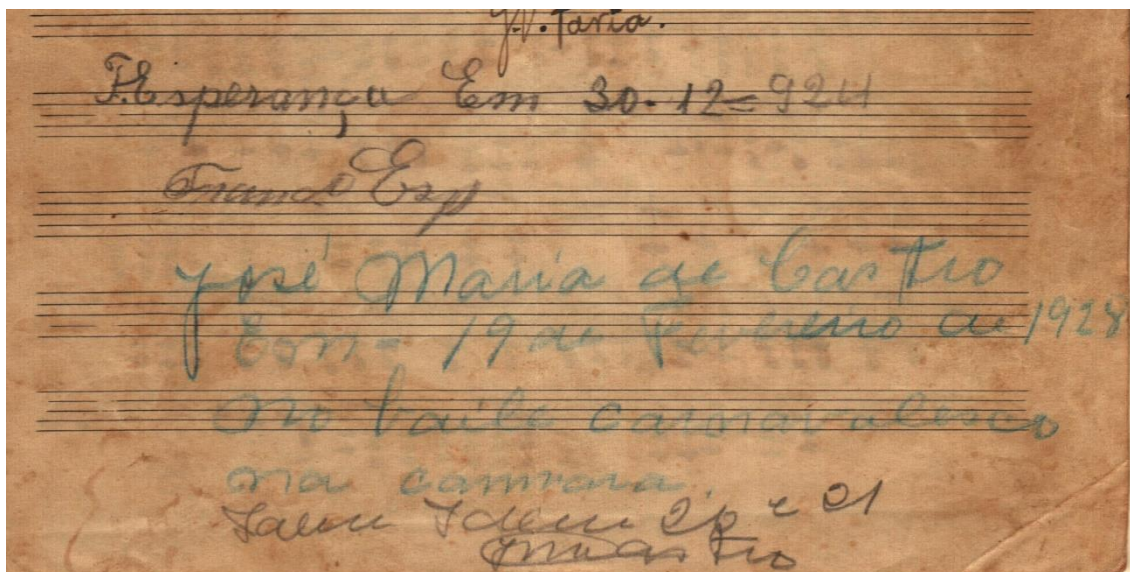 J.V. Faria.
F. Esperança Em 30-12=924
Franco Esp
José Maria de Castro
Em- 19 de Fevereiro de 1928
no baile carnavalesco
na camara.
Idem Idem 20 e 21
JMCastro